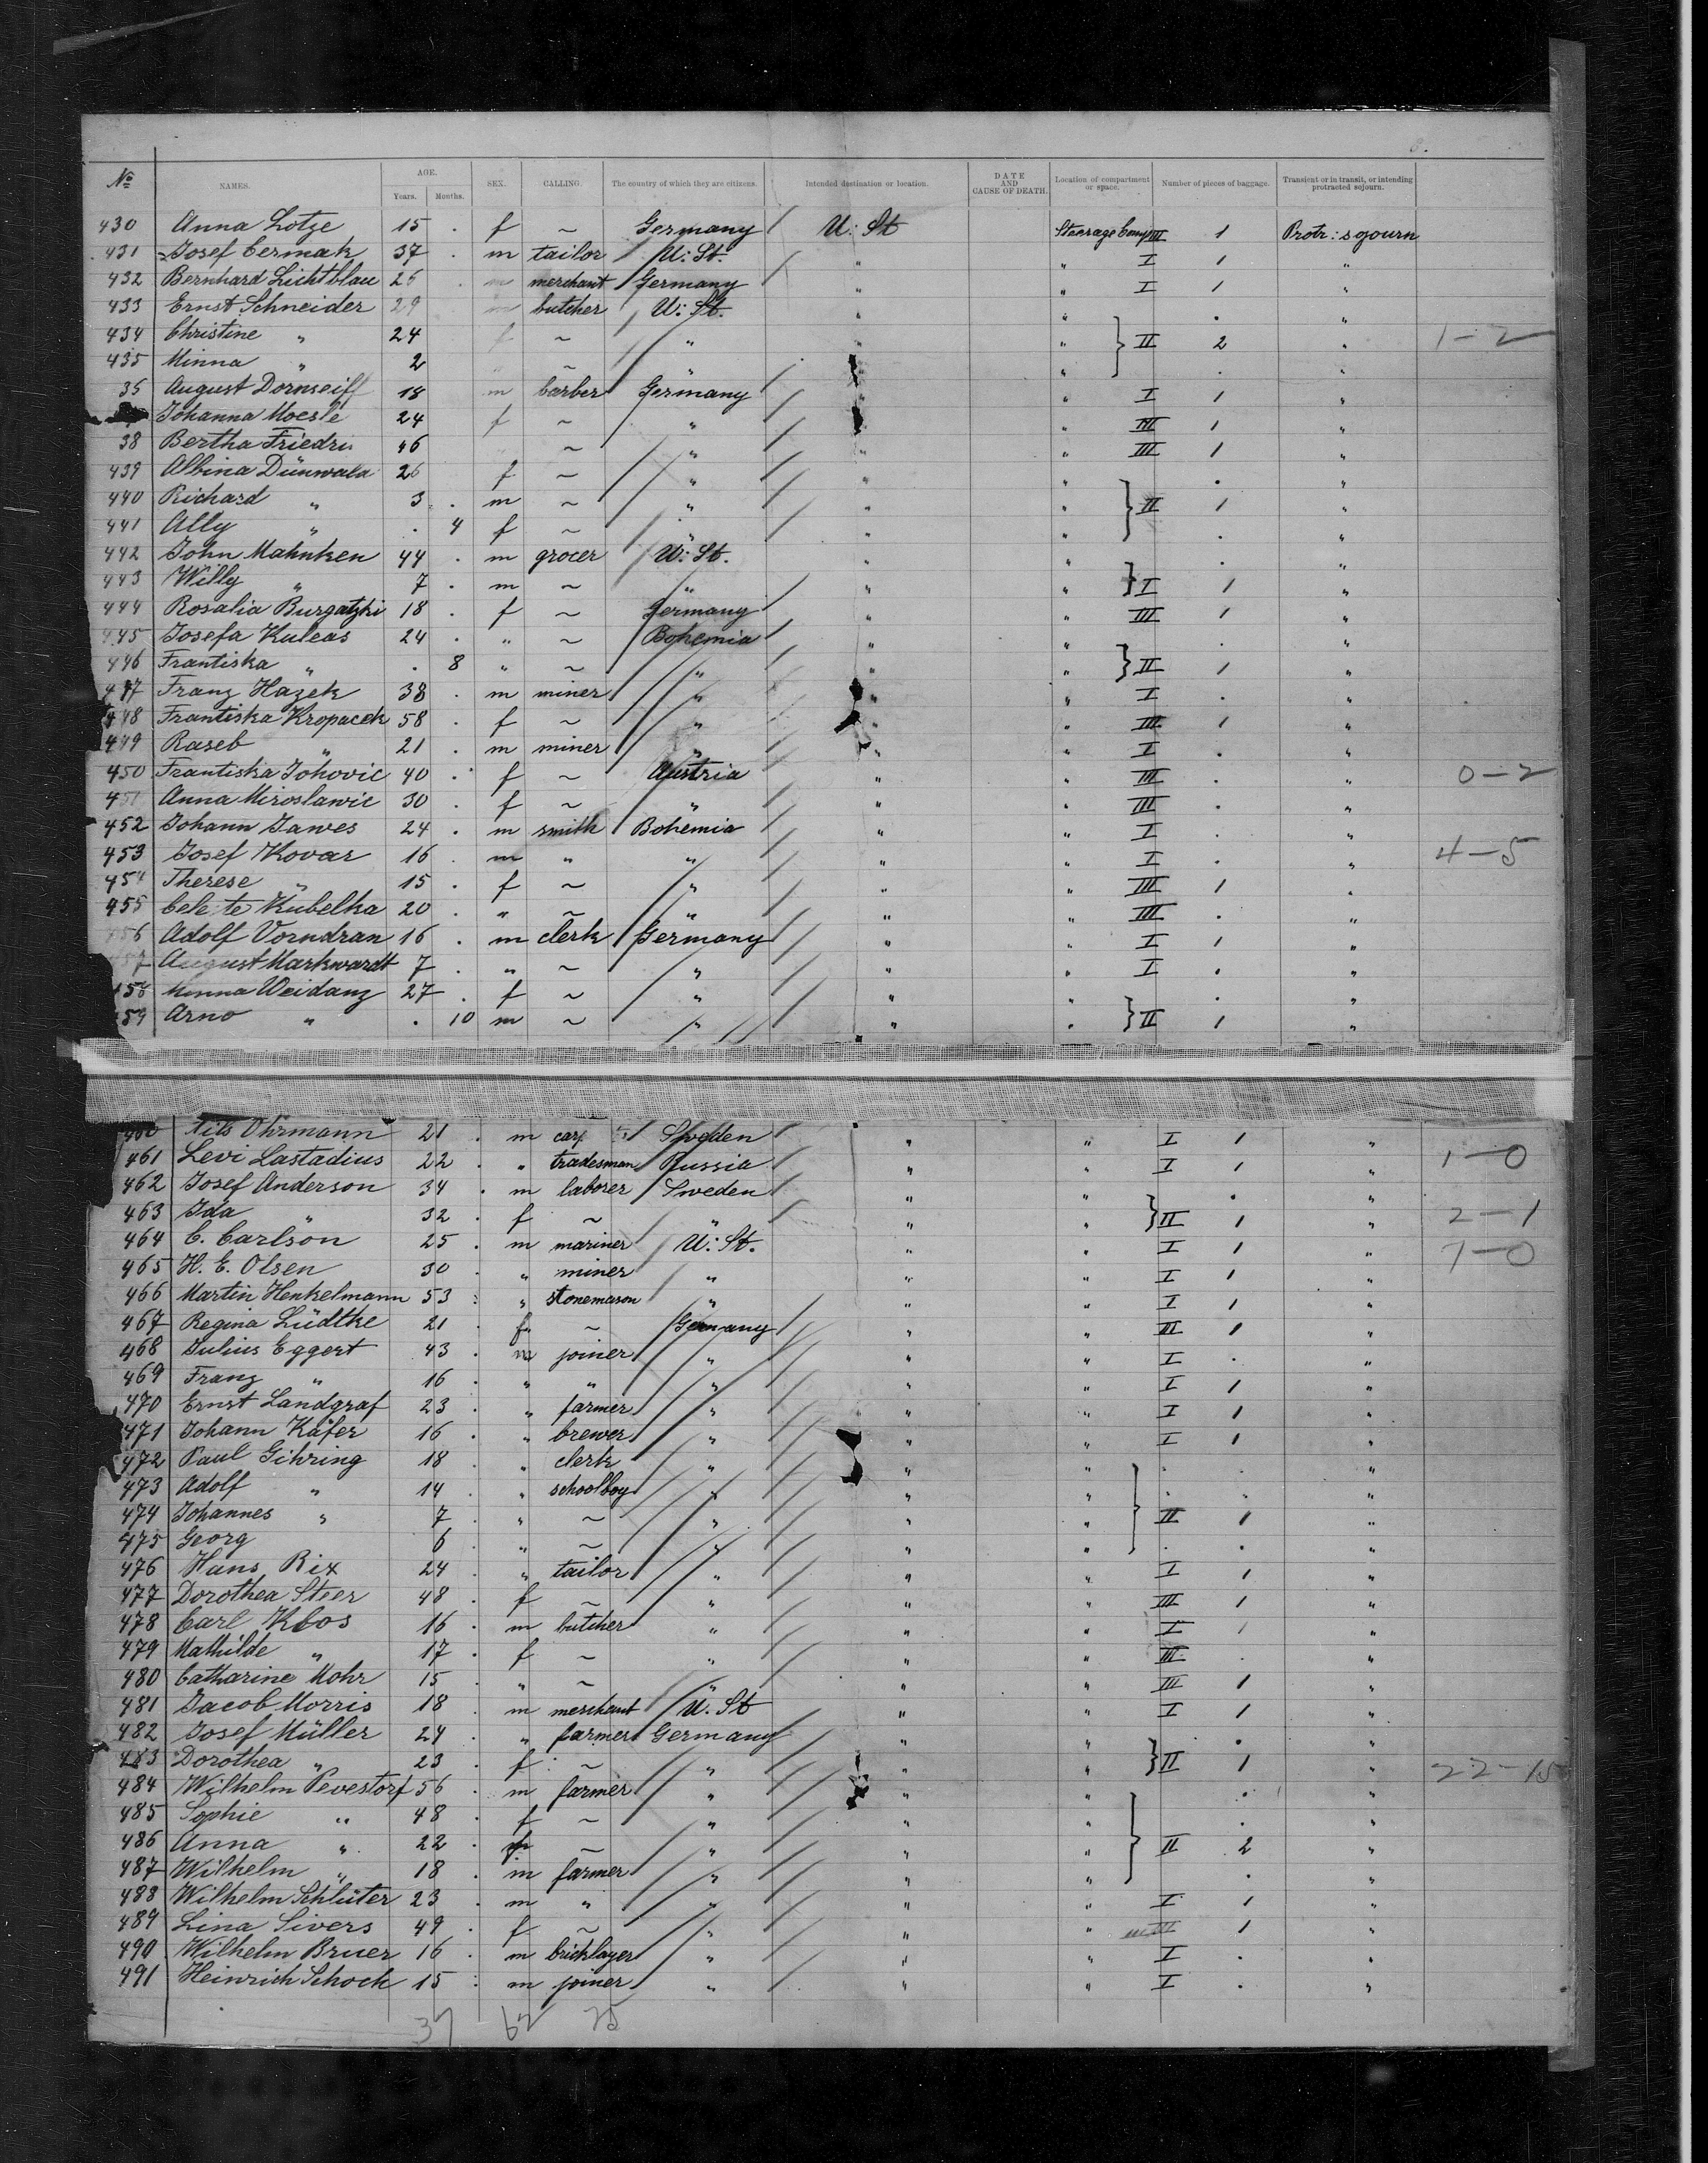 6.
№ NAMES. AGE. Years. Months. SEX. CALLING. The country of which they are citizens. Intended destination or location. DATE AND CAUSE OF DEATH. Location of compartment or space. Number of pieces of baggage. Transient or in transit, or intending protracted sojourn.
430 Anna Lotze 15 . f ~ Germany U: St Steerage Comp III 1 Protr: sojourn
431 Josef Cermak 37 . m tailor U: St. " " I 1 "
432 Bernhard Lichtblau 26 . m merchant Germany " " I 1 "
433 Ernst Schneider 29 m butcher U: St. " " . "
434 Christine " 24 f ~ " " " II 2 " 1-2
435 Minna " 2 " ~ " " " . "
35 August Dornseiff 18 m barber Germany " " I 1 "
Johanna Moesle 24 f ~ " " " III 1 "
38 Bertha Friedri 46 ~ " " " III 1 "
439 Albina Dünwald 26 f ~ " " " . "
440 Richard " 3 . m ~ " " " II 1 "
441 Ally " . 4 f ~ " " " . "
442 John Mahnken 44 . m grocer U: St. " " . "
443 Willy " 7 . m ~ " " " I 1 "
444 Rosalia Burgatzki 18 . f ~ Germany " " III 1 "
445 Josefa Kuleas 24 . " ~ Bohemia " " . "
446 Frantiska " . 8 " ~ " " " II 1 "
447 Franz Hazek 38 . m miner " " " I . "
448 Frantiska Kropacek 58 . f ~ " " " III 1 "
449 Raseb " 21 . m miner " " " I . "
450 Frantiska Johovic 40 . f ~ Austria " " III . " 0-2
451 Anna Miroslawic 30 . f ~ " " " III . "
452 Johann Jawes 24 . m smith Bohemia " " I . "
453 Josef Kovar 16 . m " " " " I . " 4-5
454 Therese " 15 . f ~ " " " III 1 "
455 Cele te Kubelka 20 . " ~ " " " III . "
456 Adolf Vorndran 16 . m clerk Germany " " I 1 "
457 August Markwardt 7 . " ~ " " " I . "
458 Minna Weidanz 27 . f ~ " " " . "
459 Arno " . 10 m ~ " " " II 1 "
460 Nils Öhrmann 21 . m carp Sweden " " I 1 "
461 Levi Lastadius 22 . " tradesman Russia " " I 1 " 1-0
462 Josef Anderson 34 . m laborer Sweden " " . "
463 Ida " 32 . f ~ " " " II 1 " 2-1
464 C. Carlson 25 . m mariner U: St. " " I 1 " 7-0
465 H. E. Olsen 30 . " miner " " " I 1 "
466 Martin Henkelmann 53 : " stonemason " " " I 1 "
467 Regina Lüdtke 21 . f ~ Germany " " III 1 "
468 Julius Eggert 43 . m joiner " " " I . "
469 Franz " 16 . " " " " " I 1 "
470 Ernst Landgraf 23 . " farmer " " " I 1 "
471 Johann Käfer 16 . " brewer " " " I 1 "
472 Paul Gihring 18 . " clerk " " " . . "
473 Adolf " 14 . " schoolboy " " " . . "
474 Johannes " 7 . " ~ " " " II 1 "
475 Georg 6 . " ~ " " " . . "
476 Hans Rix 24 . " tailor " " " I 1 "
477 Dorothea Steer 48 . f ~ " " " III 1 "
478 Carl Kloos 16 . m butcher " " " I 1 "
479 Mathilde " 17 . f ~ " " " III . "
480 Catharine Mohr 15 . " ~ " " " III 1 "
481 Jacob Morris 18 . m merchant U. St " " I 1 "
482 Josef Müller 24 . " farmer Germany " " . "
483 Dorothea " 23 . f ~ " " " II 1 " 22-15
484 Wilhelm Pevestorf 56 . m farmer " " " . "
485 Sophie " 48 . f ~ " " " . "
486 Anna " 22 . f ~ " " " II 2 "
487 Wilhelm " 18 . m farmer " " " . "
488 Wilhelm Schlüter 23 . m " " " " I 1 "
489 Lina Sivers 49 . f ~ " " " III 1 "
490 Wilhelm Bruer 16 . m bricklayer " " " I . "
491 Heinrich Schock 15 : m joiner " " " I . "
37 62 25